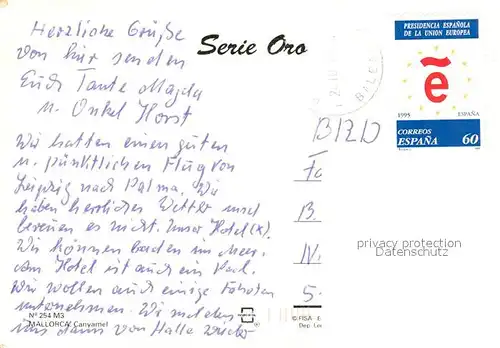 Herzliche Grüße
von hier senden
Euch Tante Magda
u. Onkel Horst
Wir hatten einen guten
u. pünktlichen Flug von
Leipzig nach Palma. Wir
haben herrliches Wetter und
bereuen es nicht. Unser Hotel (x).
Wir können baden im Meer.
am Hotel ist auch ein Pool.
Wir wollen auch einige Fahrten
unternehmen. Wir melden
uns dann von Halle wieder
Nº 254 M3
MALLORCA. Canyamel
Serie Oro
© FISA - E
Dep. Le
PRESIDENCIA ESPAÑOLA
DE LA UNION EUROPEA
ẽ
1995 ESPAÑA
CORREOS
ESPAÑA 60
BALE
BRD
B.
N.
5
privacy protection
Datenschutz